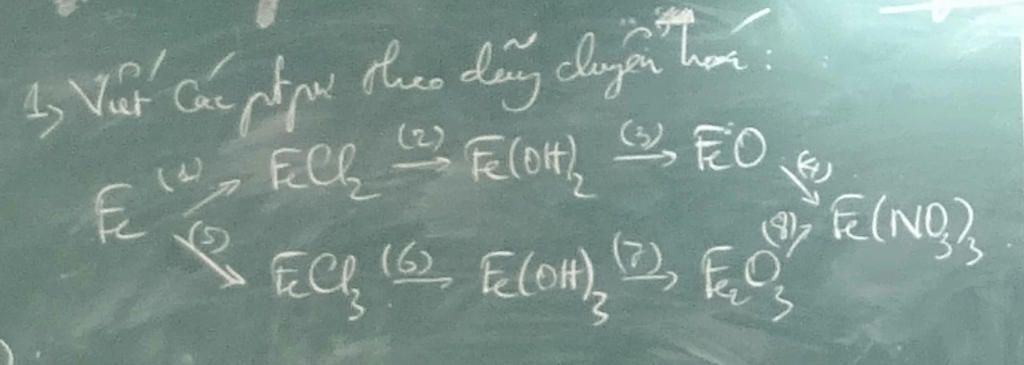 1, Viết các ptpư theo dãy chuyển hoá :
(1) FeCl₂ (2) → Fe(OH)₂ (3) → FeO (4)
Fe ↗ ↘ Fe(NO₃)₃
(5) FeCl₃ (6) → Fe(OH)₃ (7) → Fe₂O₃ (8) ↗